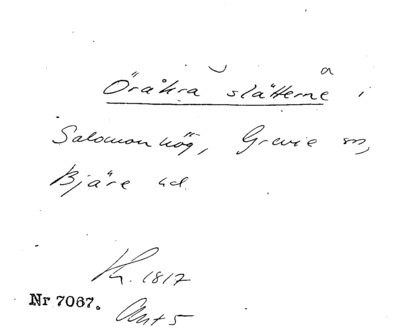 a
Öråkra slätterne i
Salomonhög, Grevie sn,
Bjäre hd.
Kh. 1817
Nr 7067. Akt 5